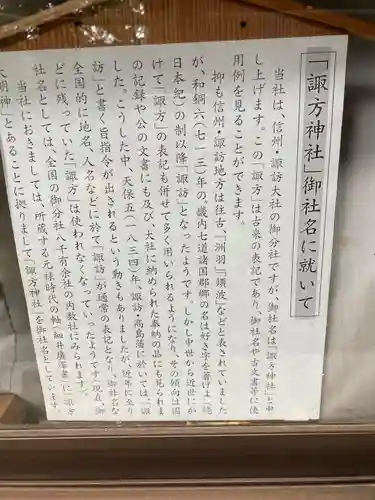 「諏方神社」御社名に就いて
当社は、信州・諏訪大社の御分社ですが、御社名は「諏方神社」と申
し上げます。この「諏方」は古来の表記であり、御社名や古文書等に使
用例を見ることができます。
抑も信州・諏訪地方は往古、「洲羽」「須波」などと表されていました
が、和銅六(七一三)年の「畿内七道諸国郡郷の名は好き字を著けよ」(続
日本紀)の制以降「諏訪」となったようです。しかし中世から近世にか
けて「諏方」の表記も併せて多く用いられるようになり、その傾向は国
の記録や公の文書にも及び、大社に納められた奉納の品にも見られま
した。こうした中、天保五(一八三四)年、諏訪・高島藩に於いては、「諏
訪」と書く旨指令が出されるという動きもありましたが、近年に至り
全国的に地名、人名などに於て「諏訪」が通常の表記となり、御社名な
どに残っていた「諏方」は使われなくなっていったようです。現在、御
社名としては、全国の御分社八千有余社の内数社にみられます。
当社におきましては、所蔵する元禄時代の軸(細井廣澤書)に「諏方
大明神」とあることに拠りまして「諏方神社」を御社名としています。